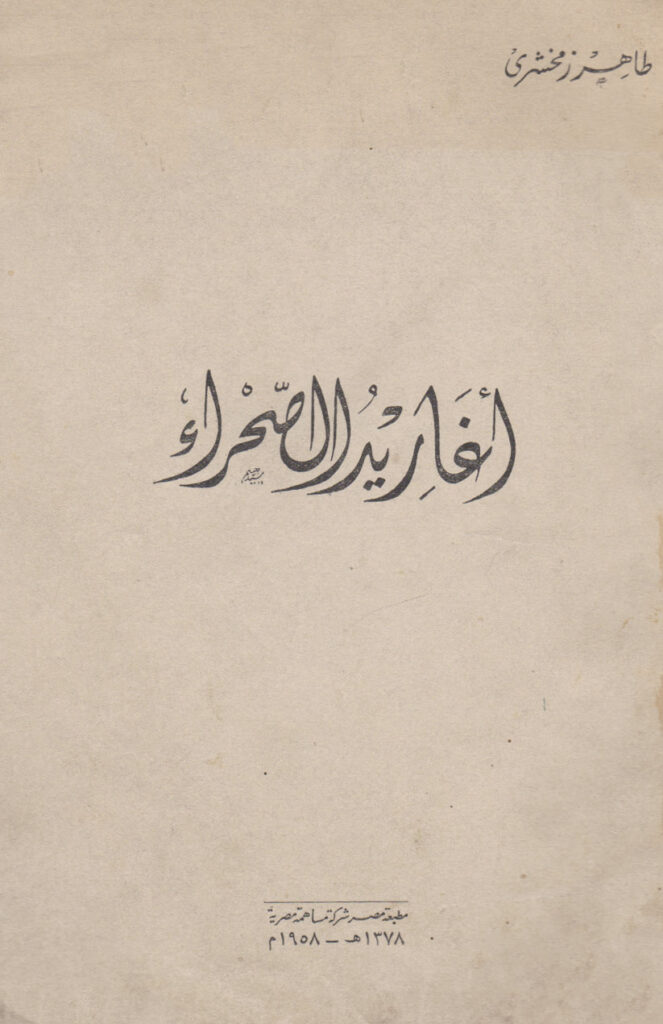 طاهر زمخشرى
أغَارِيْدُ الصّحْراء
مطبعة مصر شركة مساهمة مصرية
١٣٧٨ هـ – ١٩٥٨ م